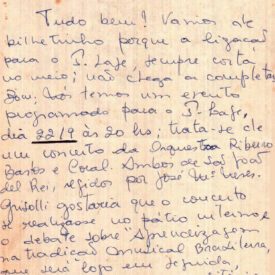 Tudo bem! Vamos de
bilhetinho porque a ligação
para o S. Laje, sempre corta
no meio; não chega a completar
Bom. Nós temos um evento
programado para o S. Laje,
dia 22/9 às 20 hs; trata-se de
um concerto da Orquestra Ribeiro
Bastos e Coral. Ambos de São João
del Rei, regidos por José Mª Neves.
Grisolli gostaria que o concerto
se realizasse no pátio interno e
o debate sobre Aprendizagem
na tradição musical Brasileira,
que será logo em seguida,